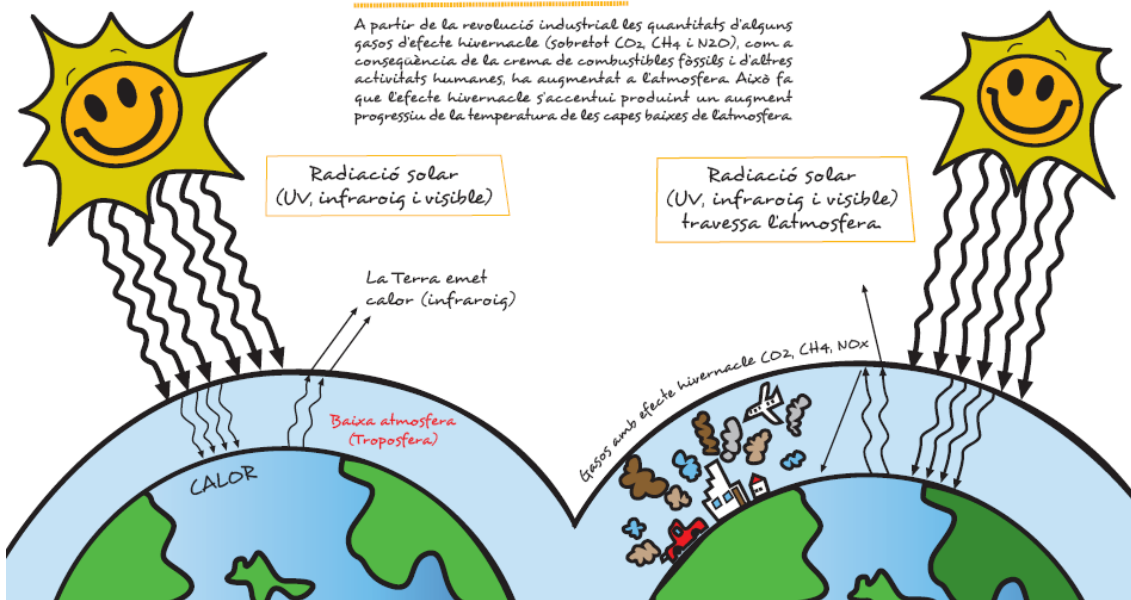 A partir de la revolució industrial les quantitats d'alguns
gasos d'efecte hivernacle (sobretot CO2, CH4 i N2O), com a
conseqüència de la crema de combustibles fòssils i d'altres
activitats humanes, ha augmentat a l'atmosfera. Això fa
que l'efecte hivernacle s'accentui produint un augment
progressiu de la temperatura de les capes baixes de l'atmosfera
Radiació solar
(UV, infraroig i visible)
Radiació solar
(UV, infraroig i visible)
travessa l'atmosfera.
La Terra emet
calor (infraroig)
Gasos amb efecte hivernacle CO2, CH4, NOx
Baixa atmosfera
(Troposfera)
CALOR